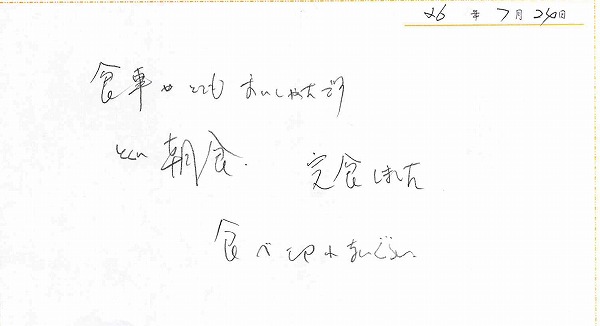 26年7月24日
食事がとてもおいしかったです
とくに朝食. 完食しました
食べきれないぐらい